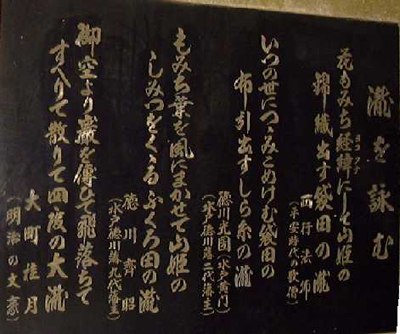 瀧を詠む
花もみち経緯にして山姫の
ヨコ タテ
錦織出す袋田の瀧
西行法師
(平安時代の歌僧)
いつの世につゝみこめけむ袋田の
布引出すしら糸の瀧
徳川光圀(水戸黄門)
(水戸徳川藩二代藩主)
もみち葉を風にまかせて山姫の
しみつをくゝるふくろ田の瀧
徳川斉昭
(水戸徳川藩九代藩主)
御空より巌を傳ひて飛落ちて
すへりて散りて四度の大瀧
大町桂月
(明治の文豪)